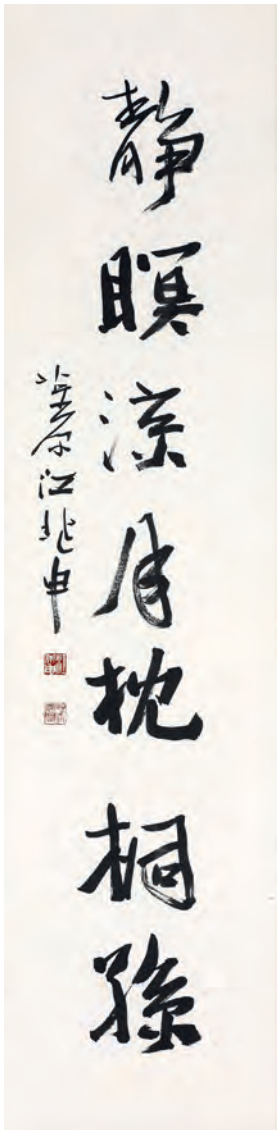 靜瞑涼月枕桐孫
茮原江兆申